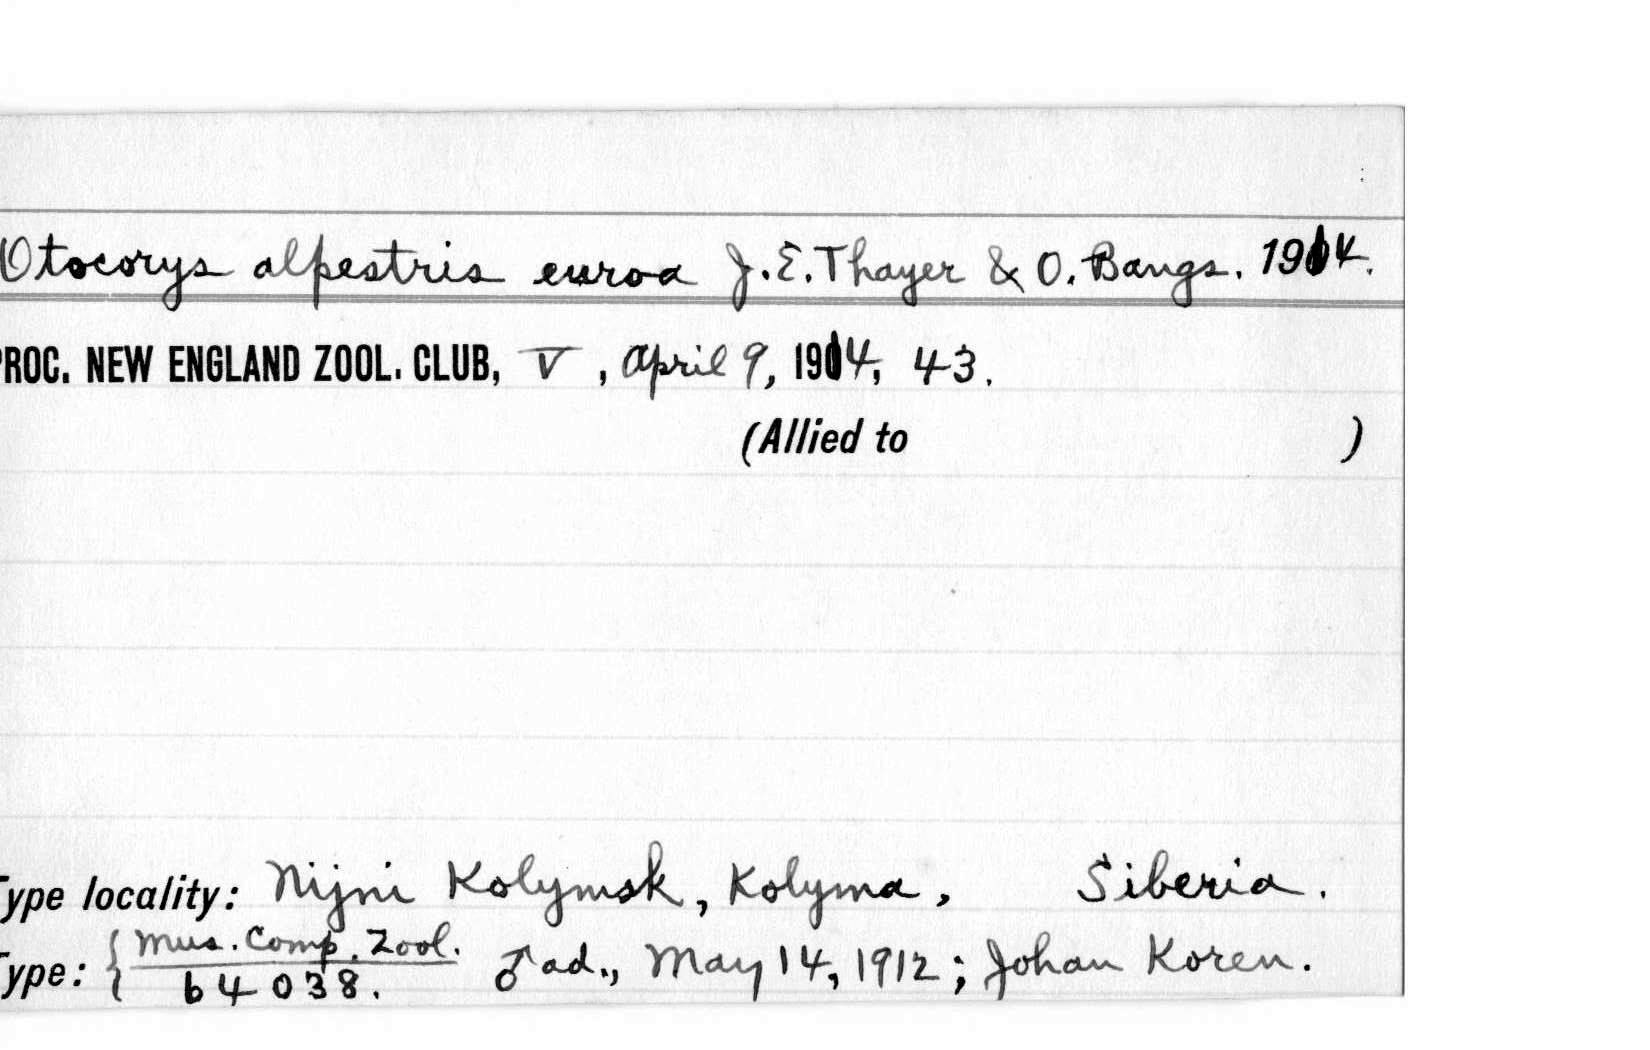 Otocorys alpestris euroa J.E.Thayer & O. Bangs. 1914.
PROC. NEW ENGLAND ZOOL. CLUB, V, April 9, 1914, 43.
(Allied to )
Type locality: Nijni Kolymsk, Kolyma, Siberia.
Type: { Mus. Comp. Zool. ♂ ad., May 14, 1912; Johan Koren.
64038.